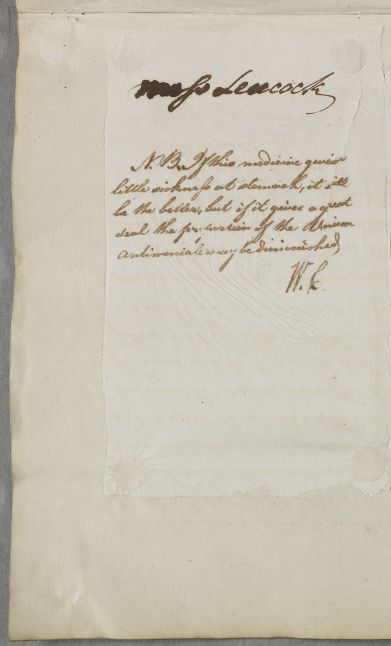 Miss Leacock
N.B. If this medicine gives
little sickness at stomach, it will
be the better, but if it gives a great
deal the proportion of the Vinum
Antimoniale may be diminished,
W. C.